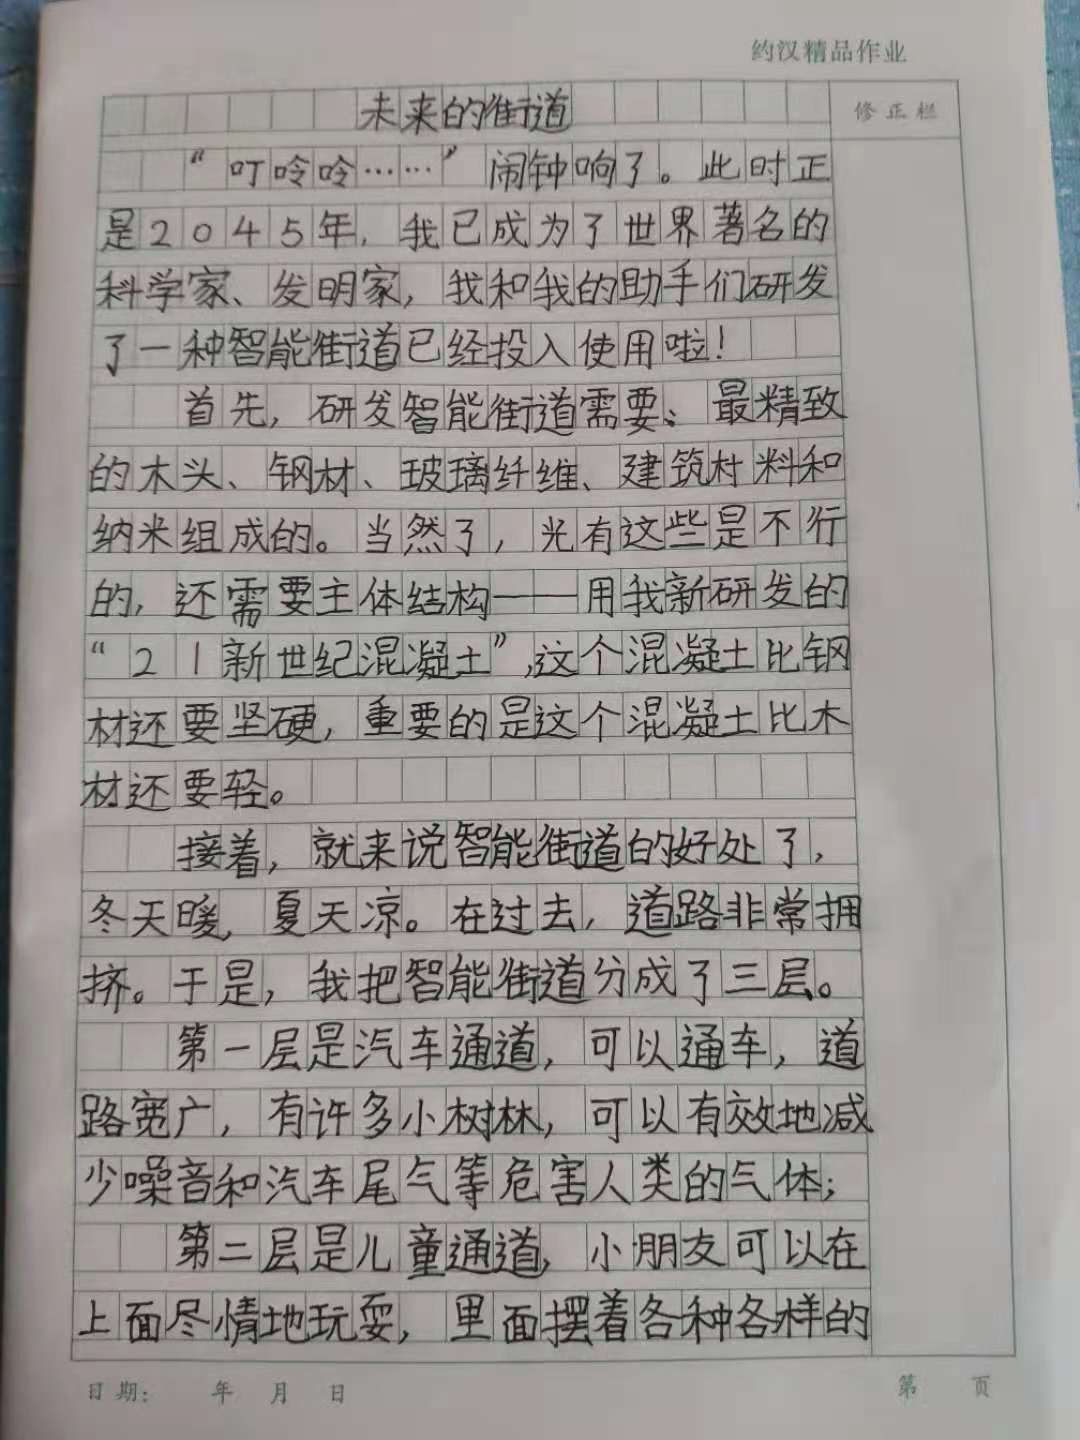 约汉精品作业
修正栏
未来的街道
“叮呤呤……”闹钟响了。此时正
是2045年，我已成为了世界著名的
科学家、发明家，我和我的助手们研发
了一种智能街道已经投入使用啦！
首先，研发智能街道需要：最精致
的木头、钢材、玻璃纤维、建筑材料和
纳米组成的。当然了，光有这些是不行
的，还需要主体结构——用我新研发的
“21新世纪混凝土”，这个混凝土比钢
材还要坚硬，重要的是这个混凝土比木
材还要轻。
接着，就来说智能街道的好处了，
冬天暖，夏天凉。在过去，道路非常拥
挤。于是，我把智能街道分成了三层。
第一层是汽车通道，可以通车，道
路宽广，有许多小树林，可以有效地减
少噪音和汽车尾气等危害人类的气体；
第二层是儿童通道，小朋友可以在
上面尽情地玩耍，里面摆着各种各样的
日期： 年 月 日
第 页